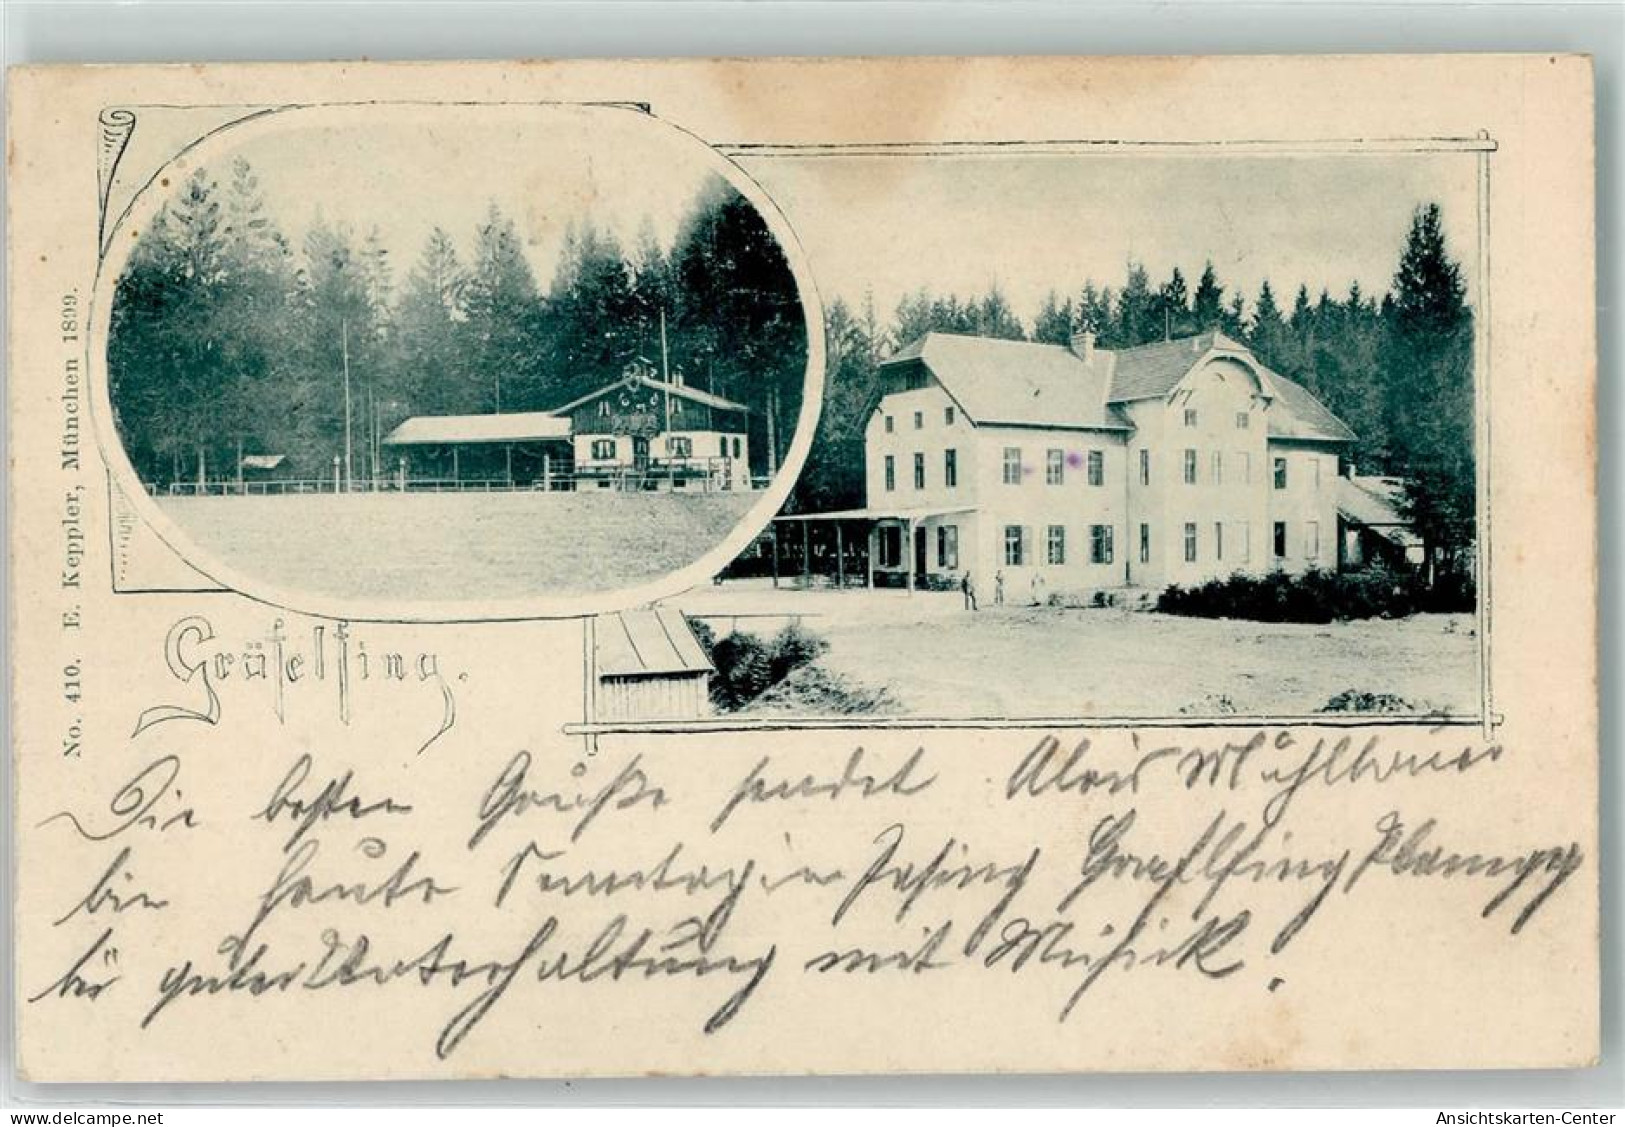 No. 410. E. Keppler, München 1899.
Gräfelfing.
Die besten Grüße sendet Alois Mühlbauer
bin heute Sonntag in Pasing Graeflfing Planegg
bei guter Unterhaltung mit Musick.
oldthing.com
Ansichtskarten-Center